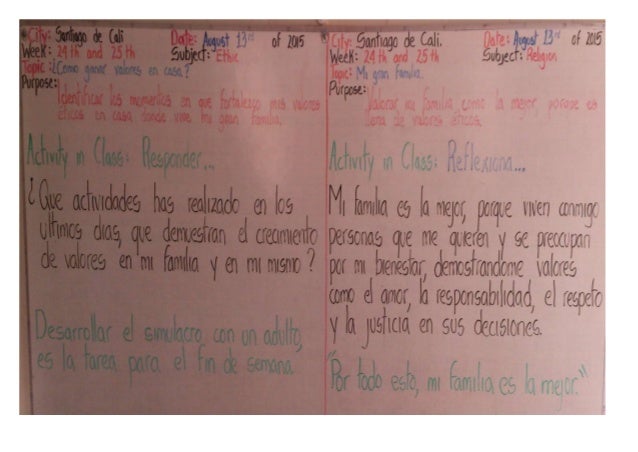 City: Santiago de Cali Date: August 13rd of 2015
Week: 24 th and 25 th Subject: Ethic
Topic: ¿Como ganar valores en casa?
Purpose:
Identificar los momentos en que fortalezco mis valores
eticos en casa donde vive mi gran familia.
Activity in Class: Responder...
¿Que actividades has realizado en los
ultimos dias, que demuestran el crecimiento
de valores en mi familia y en mi mismo?
Desarrollar el simulacro con un adulto,
es la tarea para el fin de semana
City: Santiago de Cali. Date: August 13rd of 2015
Week: 24 th and 25 th Subject: Religion
Topic: Mi gran familia.
Purpose:
Valorar mi familia como la mejor, porque es
llena de valores eticos.
Activity in Class: Reflexiona...
Mi familia es la mejor, porque viven conmigo
personas que me quieren y se preocupan
por mi bienestar, demostrandome valores
como el amor, la responsabilidad, el respeto
y la justicia en sus decisiones.
"Por todo esto, mi familia es la mejor."